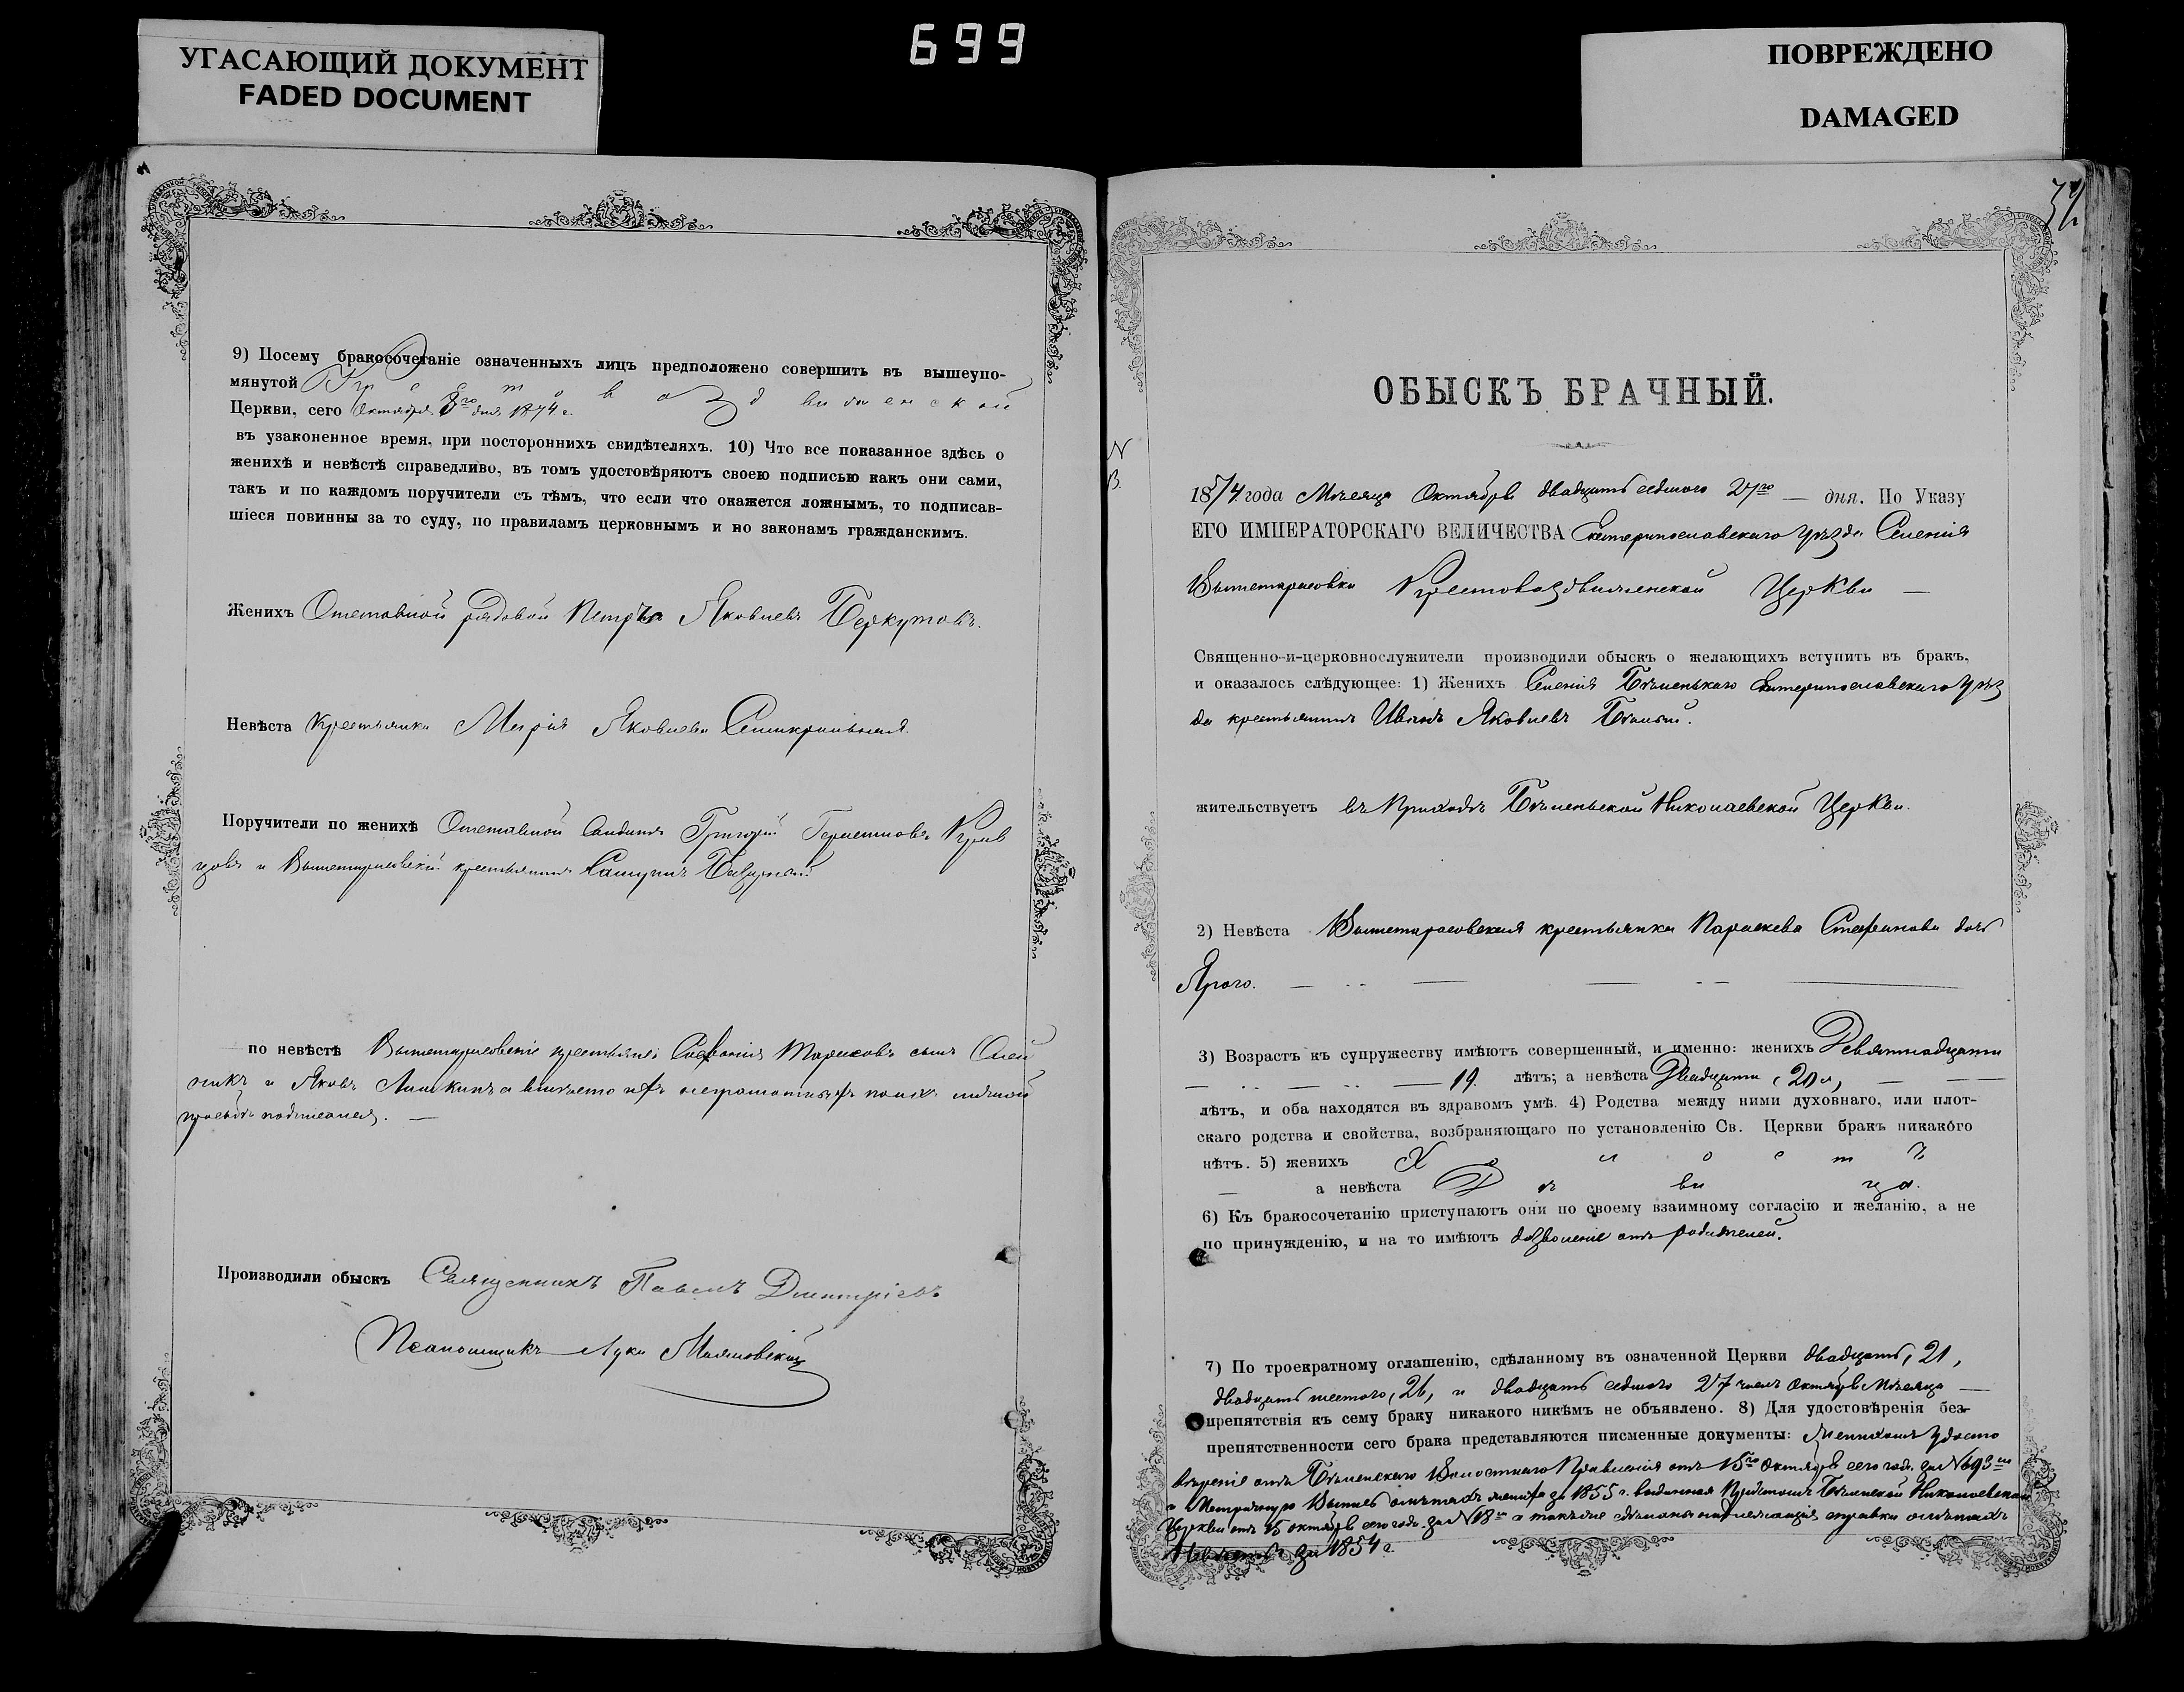 УГАСАЮЩИЙ ДОКУМЕНТ
FADED DOCUMENT
699
ПОВРЕЖДЕНО
DAMAGED
9) Посему бракосочетаніе означенныхъ лицъ предположено совершить въ вышеупо-
мянутой Крестовоздвиженской
Церкви, сего Октября 8го дня 1874 г.
въ узаконенное время, при постороннихъ свидѣтеляхъ. 10) Что все показанное здѣсь о
женихѣ и невѣстѣ справедливо, въ томъ удостовѣряютъ своею подписью какъ они сами,
такъ и по каждомъ поручители съ тѣмъ, что если что окажется ложнымъ, то подписав-
шіеся повинны за то суду, по правиламъ церковнымъ и по законамъ гражданскимъ.
Женихъ Отставной рядовой Петръ Яковлевъ Беркутовъ.
Невѣста Крестьянка Марія Яковлева
Поручители по женихѣ Отставной Григорій
и Вышетарасовскій крестьянинъ
по невѣстѣ Вышетарасовскіе крестьяне: Тарасовъ сынъ Олей
никъ и Яковъ а вмѣсто ихъ неграмотныхъ по ихъ личной
просьбѣ подписался.
Производили обыскъ Священникъ Павелъ Дмитріевъ
Псаломщикъ Лука
34
ОБЫСКЪ БРАЧНЫЙ.
N
B.
1874 года Мѣсяца Октября двадцать седьмого 27го — дня. По Указу
ЕГО ИМПЕРАТОРСКАГО ВЕЛИЧЕСТВА Екатеринославскаго уѣзда Селенія
Вышетарасовки Крестовоздвиженской Церкви —
Священно-и-церковнослужители производили обыскъ о желающихъ вступить въ бракъ,
и оказалось слѣдующее: 1) Женихъ Селенія Бѣленькаго Екатеринославскаго уѣз
да крестьянинъ Яковлевъ
жительствуетъ въ Приходѣ Бѣленьской Николаевской Церкви.
2) Невѣста Вышетарасовская крестьянка Параскева Стефанова дочь
Ярого.
3) Возрастъ къ супружеству имѣютъ совершенный, и именно: женихъ Девятнадцати
19. лѣтъ; а невѣста Двадцати (20ти)
лѣтъ, и оба находятся въ здравомъ умѣ. 4) Родства между ними духовнаго, или плот-
скаго родства и свойства, возбраняющаго по установленію Св. Церкви бракъ никакого
нѣтъ. 5) женихъ Холостъ
а невѣста Дѣвица.
6) Къ бракосочетанію приступаютъ они по своему взаимному согласію и желанію, а не
по принужденію, и на то имѣютъ дозволеніе отъ родителей.
7) По троекратному оглашенію, сдѣланному въ означенной Церкви двадцать, 21,
двадцать шестого, 26, и двадцать седьмого 27 чиселъ Октября Мѣсяца —
препятствія къ сему браку никакого никѣмъ не объявлено. 8) Для удостовѣренія без-
препятственности сего брака представляются писменные документы: Женихомъ удосто
вѣреніе отъ Бѣленскаго Волостнаго Правленія отъ 15го Октября сего года за № 693
и Метрическую Выпись о жениха за 1855 г. выданная Причтомъ Бѣленской Николаевской
Церкви отъ 15 октября сего года за № 18 а также сдѣлана надлежащая справка о
Невѣсты за 1854 г.